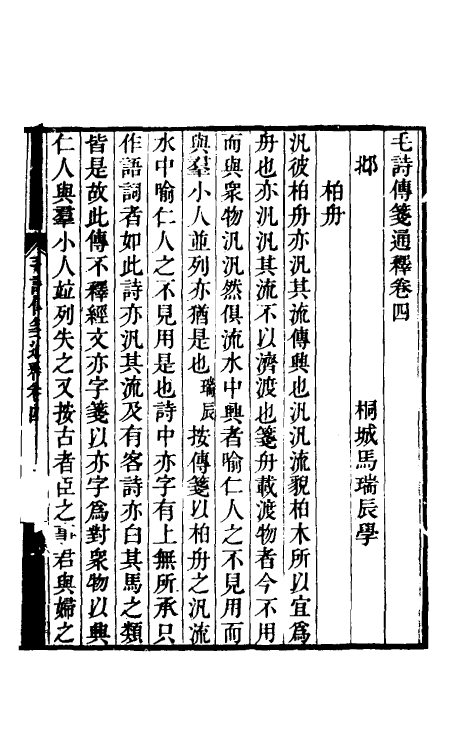 毛詩傳箋通釋卷四
桐城馬瑞辰學
邶
柏舟
汎彼柏舟亦汎其流傳興也汎汎流貌柏木所以宜爲
舟也亦汎汎其流不以濟渡也箋舟載渡物者今不用
而與衆物汎汎然俱流水中興者喻仁人之不見用而
與羣小人並列亦猶是也瑞辰按傳箋以柏舟之汎流
水中喻仁人之不見用是也詩中亦字有上無所承只
作語詞者如此詩亦汎其流及有客詩亦白其馬之類
皆是故此傳不釋經文亦字箋以亦字爲對衆物以興
仁人與羣小人並列失之又按古者臣之事君與婦之
毛詩傳箋通釋卷四